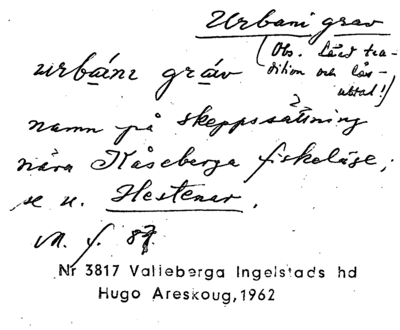 Urbani grav
(Obs. lärd tra-
dition och läs-
uttal!)
urbáni gráv
namn på skeppssättning
nära Kåseberga fiskeläge;
se u. Hestenar.
M. f. 87.
Nr 3817 Valleberga Ingelstads hd
Hugo Areskoug, 1962